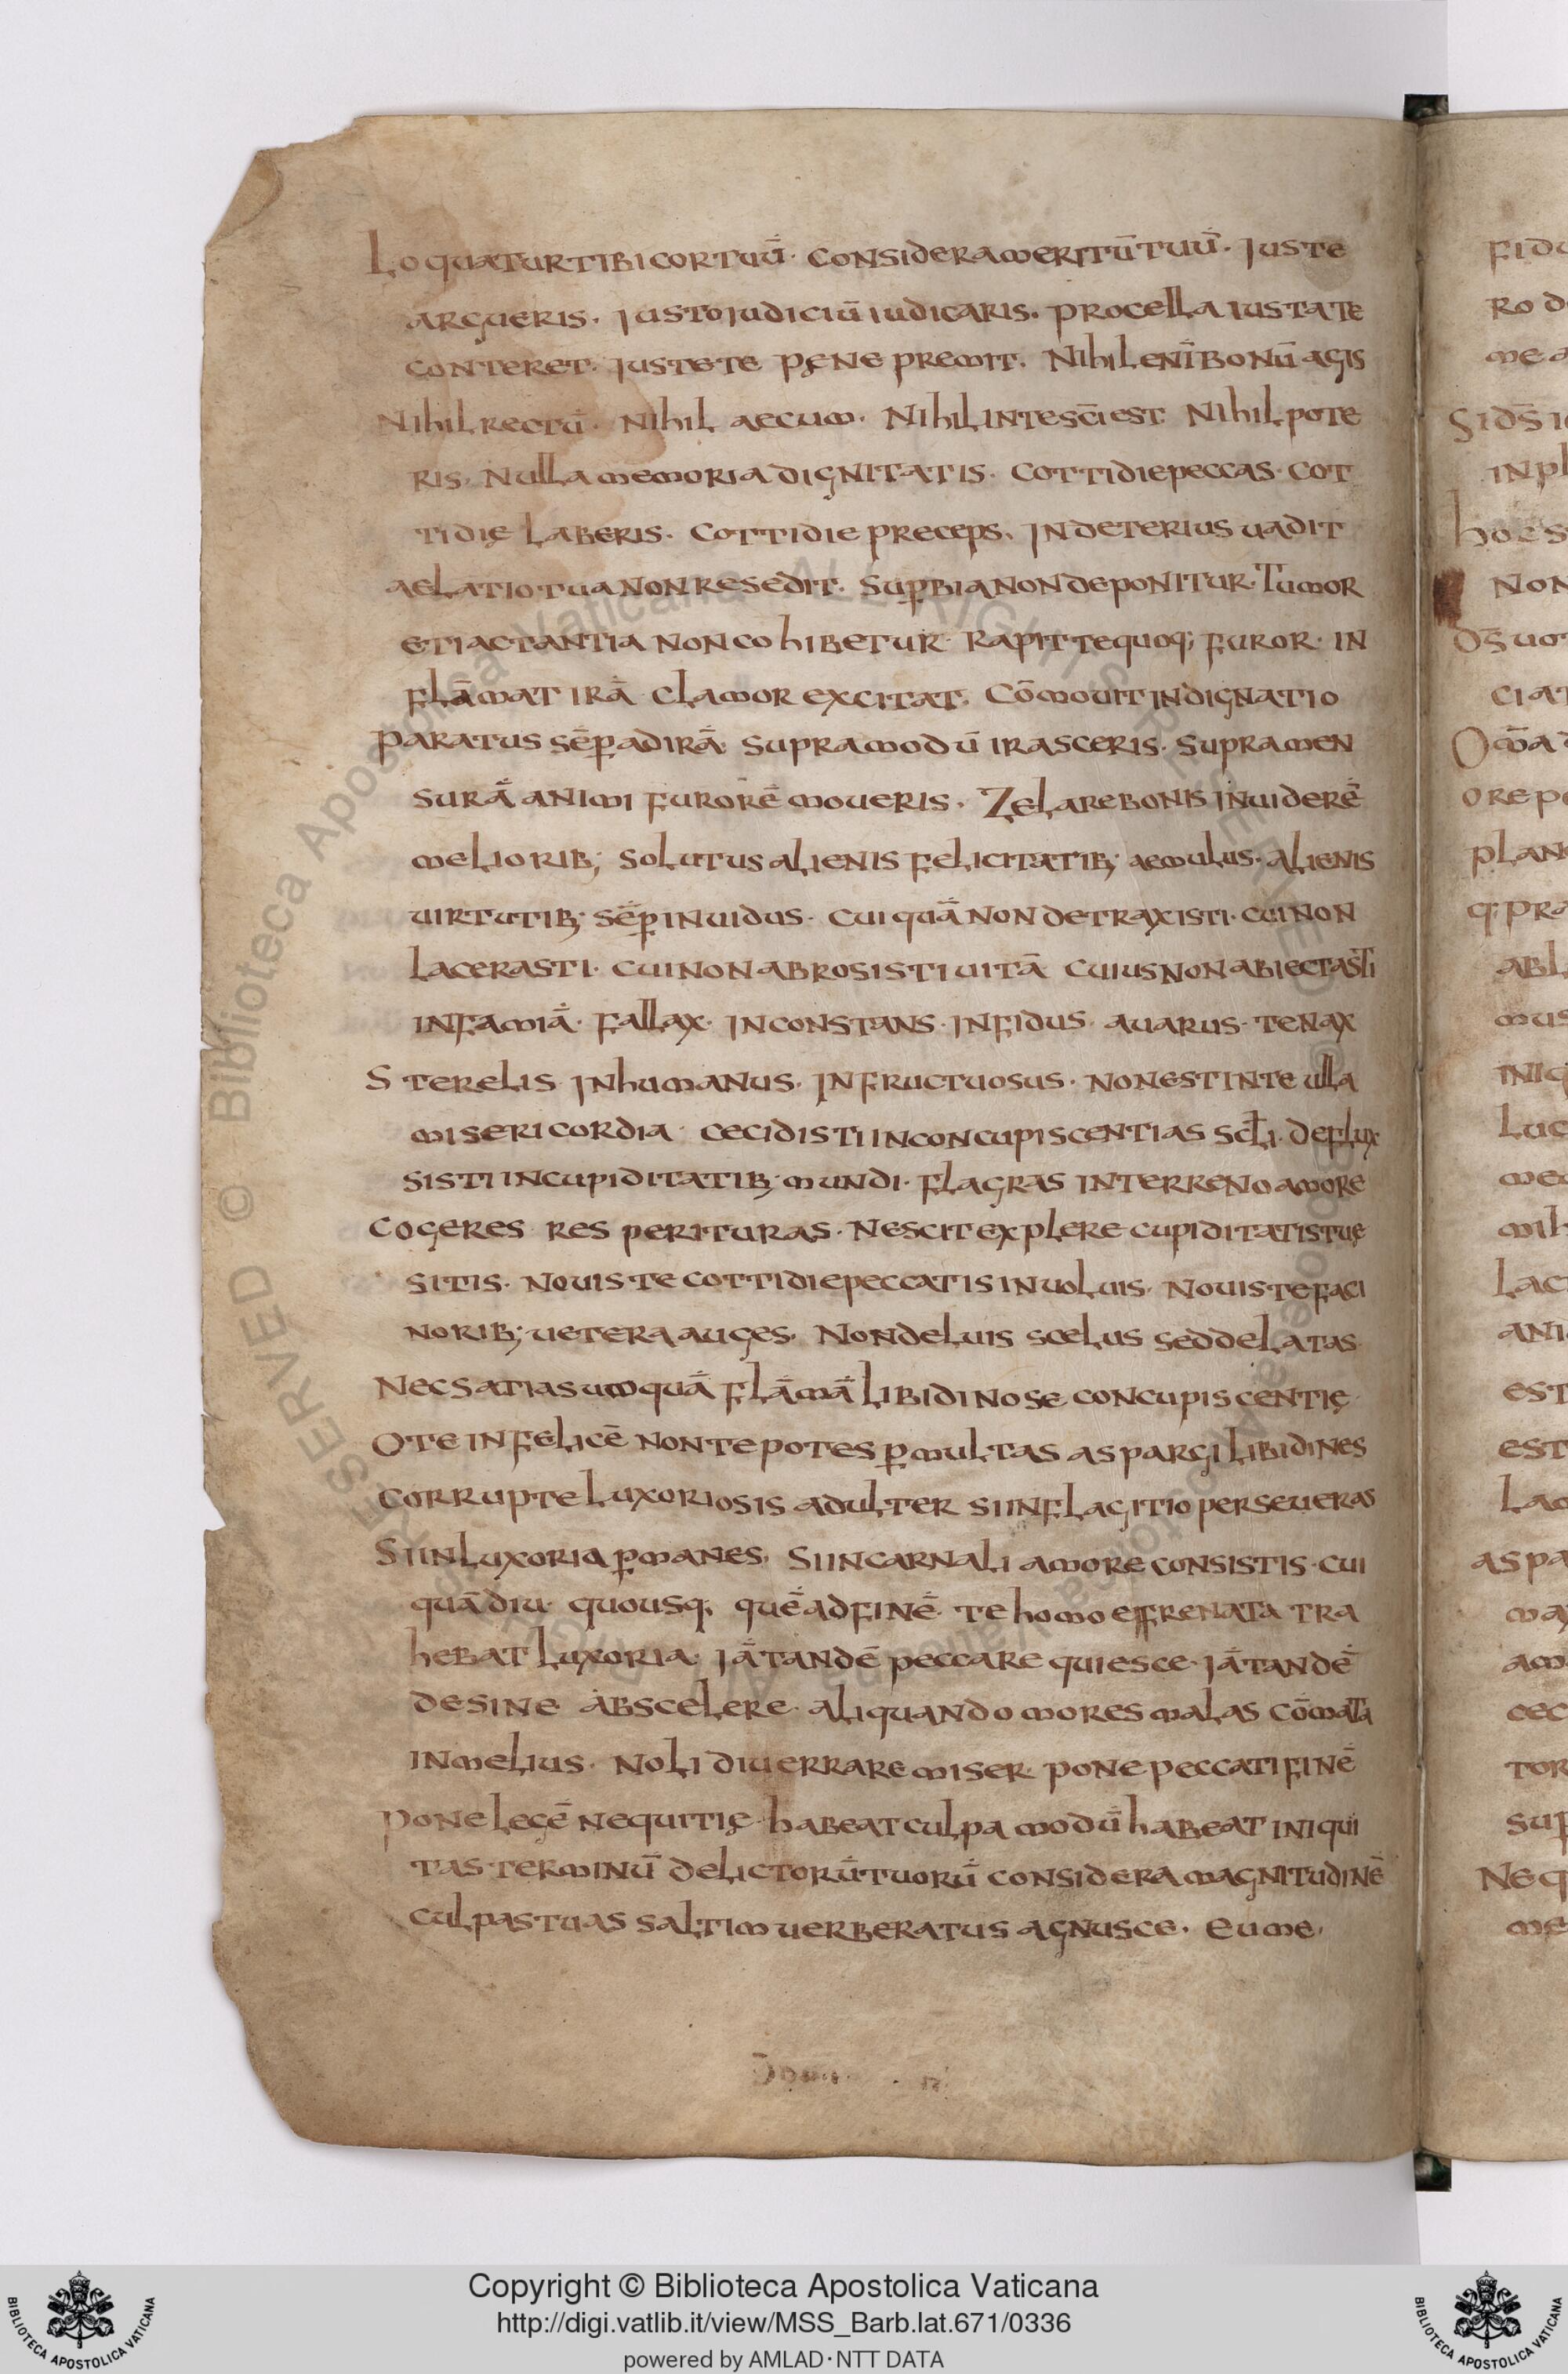 Loquatur tibi cor tuū· considera meritū tuū· Iuste
argueris· Iusto iudiciū iudicaris· procella iusta te
conteret· Iuste te pęne premit· Nihil enī bonū agis
Nihil rectū· Nihil aecum· Nihil in te sc̄i est· Nihil pote
ris· Nulla memoria dignitatis· cottidie peccas· cot
tidię laberis· cottidie preceps· In deterius uadit
aelatio tua non resedit· supbia non deponitur· Tumor
et iactantia non cohibetur· Rapit te quoq; furor· in
flāmat irā clamor excitat· Cōmouit indignatio
paratus sēp ad irā· supra modū irasceris· supra men
surā animi furorē moueris· Zelare bonis inuiderē
meliorib; solutus alienis felicitatib; aemulus· alienis
uirtutib; sēp inuidus· cui quā non detraxisti· cui non
lacerasti· cui non abrosisti uitā cuius non abiectasti
infamiā· fallax· inconstans· infidus· auarus· tenax
Sterelis inhumanus· infructuosus· non est in te ulla
misericordia· cecidisti in concupiscentias scl̄i· deflux
sisti in cupiditatib; mundi· flagras in terreno amore
cogeres res perituras· Nescit explere cupiditatis tuę
sitis· Nouis te cottidie peccatis inuoluis· Nouis te faci
norib; uetera auges· Non deluis scelus sed delatas
Nec satias umquā flāmā libidinose concupiscentię·
O te infelicē non te potes p multas aspargi libidines
corrupte luxoriosis adulter si in flagitio perseueras
Si in luxoria pmanes· Si in carnali amore consistis· cui
quādiu· quousq; quē ad finē· te homo effrenata tra
hebat luxoria· Iā tandē peccare quiesce· Iā tandē
desine ab scelere· aliquando mores malas cōmata
in melius· Noli diu errare miser· pone peccati finē
pone legē nequitię· habeat culpa modū habeat iniqui
tas terminū delictorū tuorū considera magnitudinē
culpas tuas saltim uerberatus agnusce· Eume·
fidu
ro d
me a
Si ds̄ i
in pl
hoc s
non
Ds̄ uo
ciat
Om̄a d
ore p
plan
q; pra
abl
mus
iniq
luc
me
mih
lac
ani
est
est
lac
aspa
ma
am
cec
tor
sup
Neq
me
© Biblioteca Apostolica Vaticana ALL RIGHTS RESERVED
Copyright © Biblioteca Apostolica Vaticana
http://digi.vatlib.it/view/MSS_Barb.lat.671/0336
powered by AMLAD·NTT DATA
BIBLIOTECA APOSTOLICA VATICANA
BIBLIOTECA APOSTOLICA VATICANA